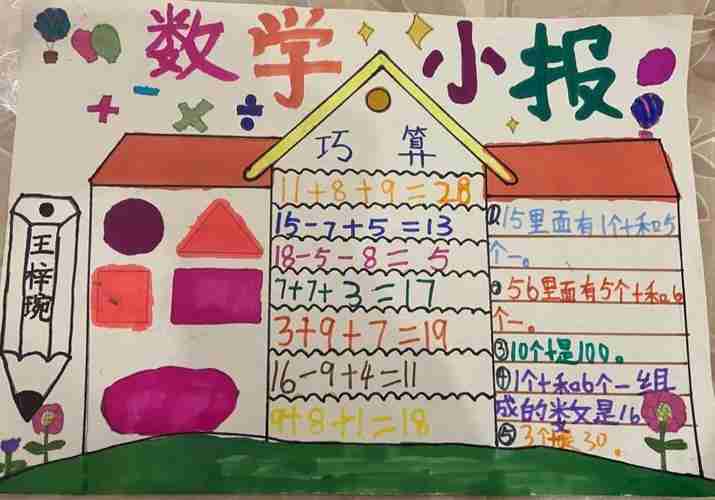 数学小报
巧 算
11+8+9=28
15-7+5=13
18-5-8=5
7+7+3=17
3+9+7=19
16-9+4=11
9+8+1=18
王梓琬
①15里面有1个十和5
个一。
②56里面有5个十和6
个一。
③10个十是100。
④1个十和6个一组
成的数是16
⑤3个十是30。